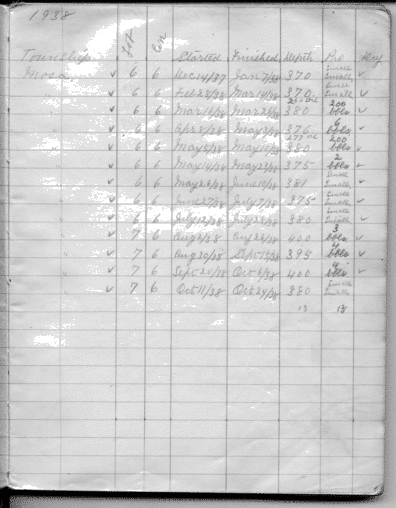 1938
Township Lot Con Started Finished Depth Pro Dry
Mosa ✓ 6 6 Dec 14/37 Jan 7/38 370 Small ✓
" ✓ 6 6 Feb 23/38 Mar 14/38 370 Small ✓
" ✓ 6 6 Mar 14/38 Mar 26/38 380 200 bbls ✓
" ✓ 6 6 Apr 8/38 May 3/38 376 6 bbls ✓
" ✓ 6 6 May 5/38 380 200 bbls ✓
" ✓ 6 6 May 14/38 May 23/38 375 2 bbls ✓
" ✓ 6 6 May 26/38 June 381 Small ✓
" ✓ 6 6 June 27/38 July 7/38 375 Small ✓
" ✓ 6 6 July 12/38 380 Small ✓
" ✓ 7 6 Aug 26/38 400 3 bbls ✓
" ✓ 7 6 Aug 30/38 395 4 bbls ✓
" ✓ 7 6 Sept 20/38 Oct 400 4 bbls ✓
" ✓ 7 6 Oct 11/38 Oct 29/38 380 Small
13 13